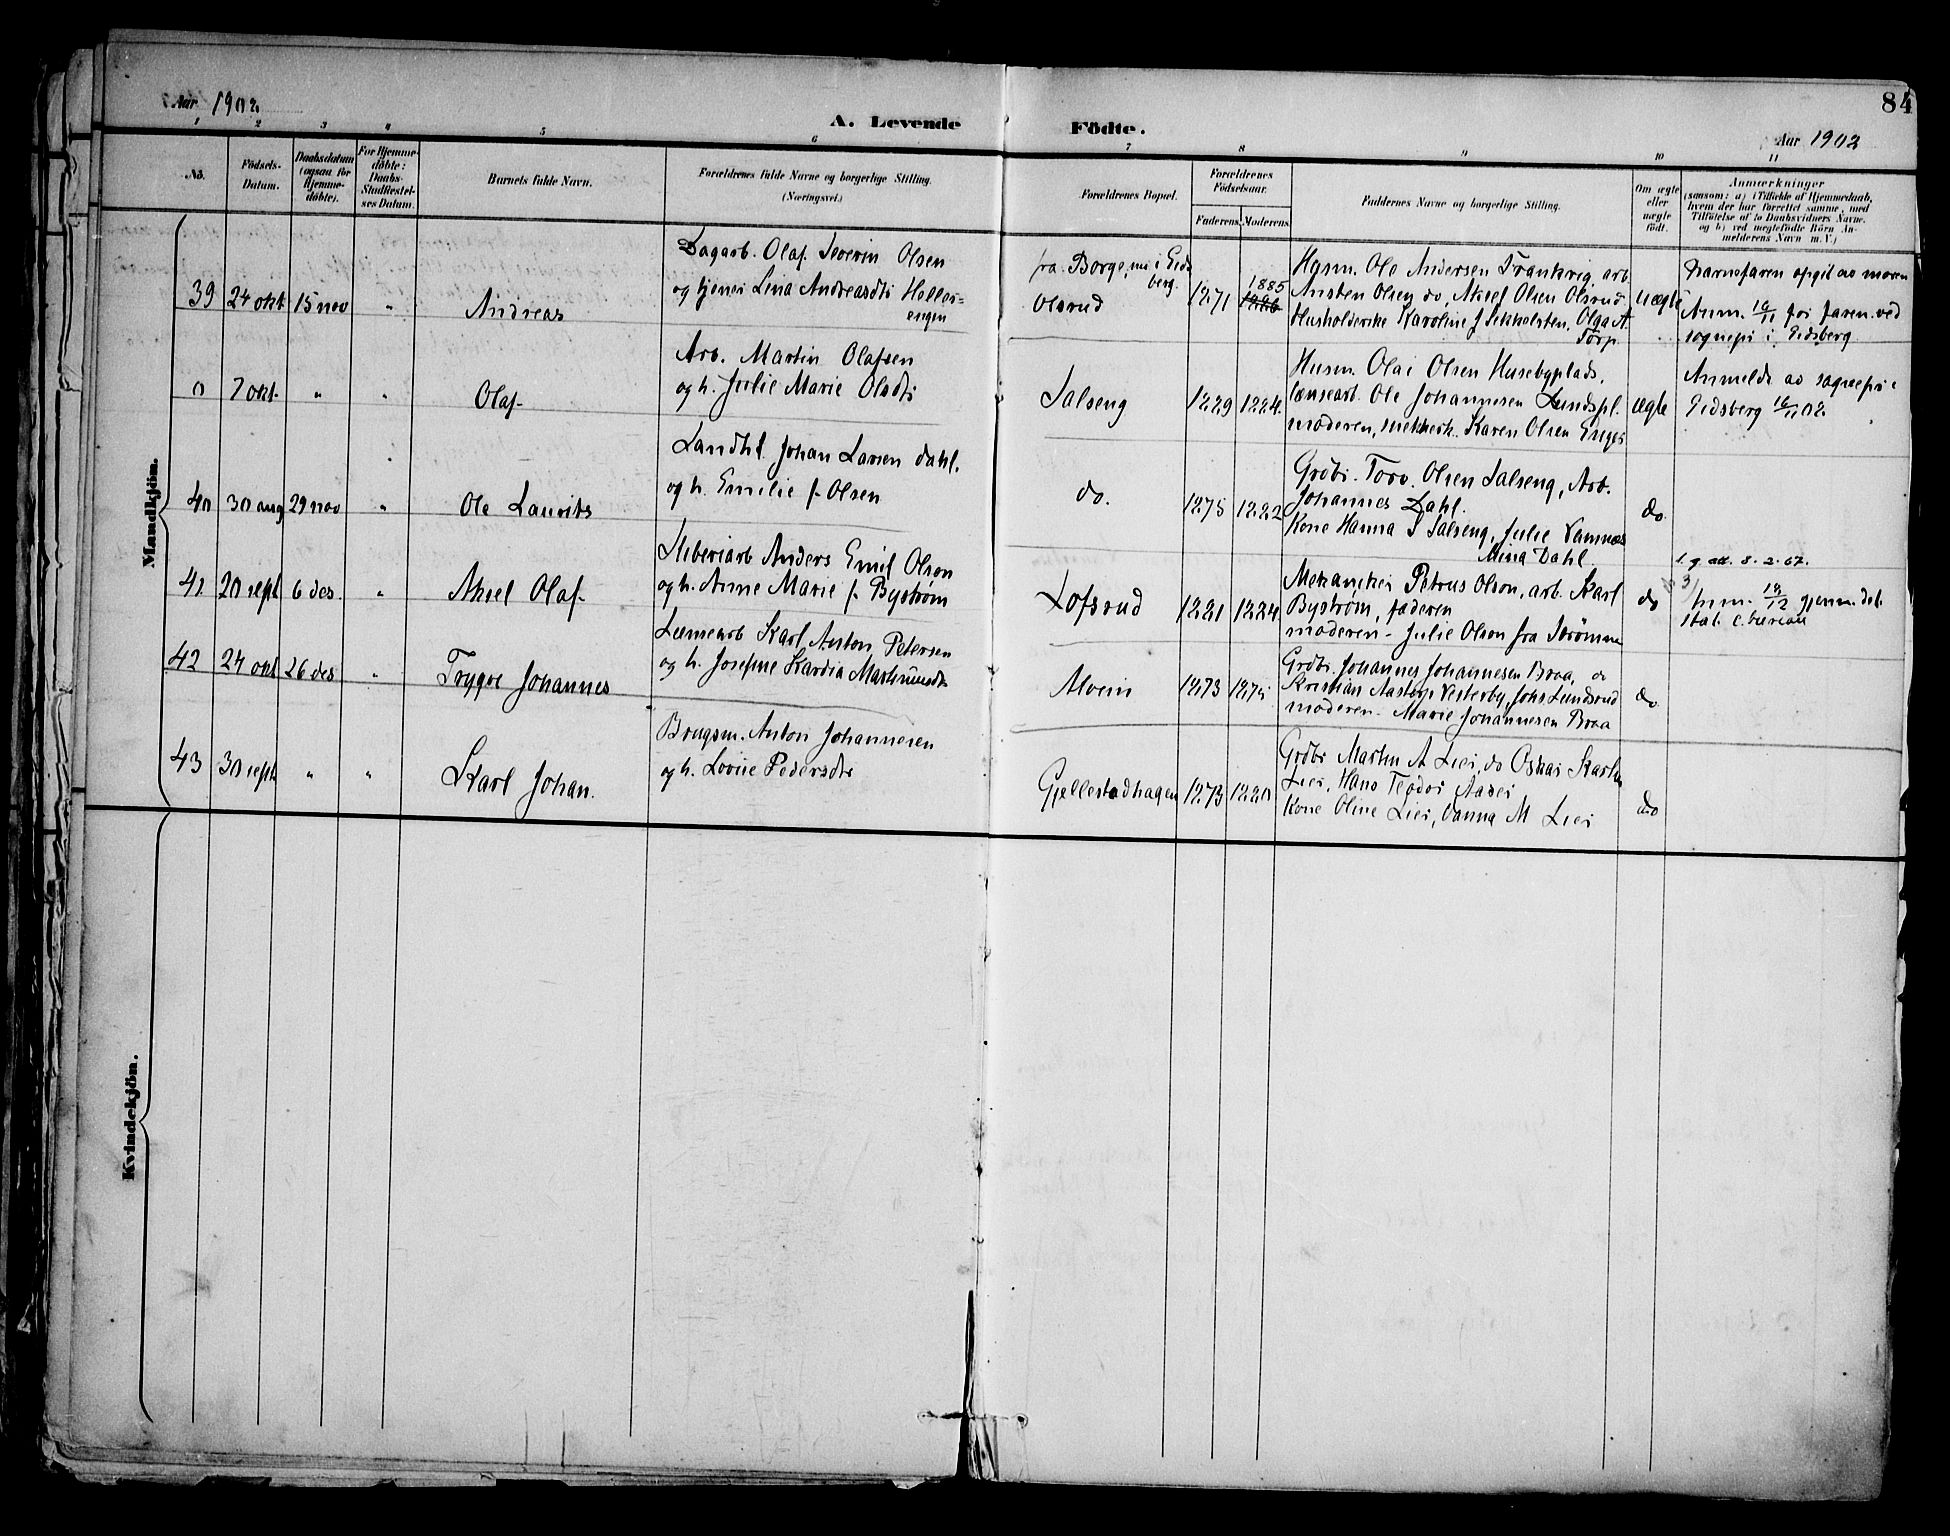 Aar 1902
A. Levende Födte.
84
Aar 1902
1 2 3 4 5 6 7 8 9 10 11
No.
Födsels-Datum.
Daabsdatum (ogsaa for Hjemme-döbte).
For Hjemme-döbte: Daabs-Stadfæstel-ses Datum.
Barnets fulde Navn.
Forældrenes fulde Navne og borgerlige Stilling. (Næringsvei.)
Forældrenes Bopæl.
Forældrenes Födselsaar.
Faderens.
Moderens.
Faddernes Navne og borgerlige Stilling.
Om ægte eller uægte födt.
Anmærkninger
(saasom: a) i Tilfælde af Hjemmedaab,
hvem der har forrettet samme, med
Tilföielse af to Daabsvidners Navne.
og b) ved uægtefödte Börn An-
melderens Navn m. V.)
Mandkjön.
39 24 okt 15 nov " Andreas
Dagarb. Olaf Severin Olsen
og tjener Lina Andreasdtr Heller-
engen
fra Borge, nu i Eids
berg.
Olsrud
1871 1885 1886
Husm. Ole Andersen Frankrig, arb.
Ansten Olsen do, Aksel Olsen Olsrud
Husholderske Karoline J Sekkelsten, Olga A
Torp
uægte
Barnefaren opgit av moren
Anm. 18/11 for faren ved
sognepr i Eidsberg
0 7 okt. " " Olaf
Arb. Martin Olafsen
og h. Julie Marie Olsdtr
Salseng 1889 1884.
Husm. Olai Olsen Husebyplads,
lænsearb. Ole Johannesen Lundspl.
moderen, Karen Olsen Enger
ægte
Anmeldt av sognepr i
Eidsberg 18/11 02
40 30 aug 29 nov " Ole Laurits
Landhl. Johan Larsen Dahl.
og h. Emilie f. Olsen
do. 1875 1882
Grdbr. Torv. Olsen Salseng, Arb.
Johannes Dahl.
Kone Hanna S Salseng, Julie Vamnæs
Mina Dahl
do
41 20 sept 6 des. " Aksel Olaf
Sliberiarb Anders Emil Olson
og h. Anne Marie f. Byström
Lofsrud 1881 1884
Mekaniker Petrus Olson, arb. Karl
Byström, faderen
moderen - Julie Olson fra Strömme
do
1. g. att. 8.2.67.
Anm. 18/12 gjenn. det
stat. c. bureau
42 24 okt 26 des " Trygve Johannes
Lænsearb Karl Anton Petersen
og h. Josefine Kardia Mathinusdtr
Alvein 1873 1875
Grdbr. Johannes Johannesen Braa, do
Kristian Aastorp Vesterby, Johs Lundsrud
moderen - Marie Johannesen Braa
do
43 30 sept " " Karl Johan.
Brugsm. Anton Johannesen
og h. Lovise Pedersdtr
Gjellestadhagen 1873 1880
Grdbr Martin A Lier, do Oskar Karlsen
Lier, Hans Teodor Aaser
Kone Oline Lier, Hanna M Lier
do
Kvindekjön.